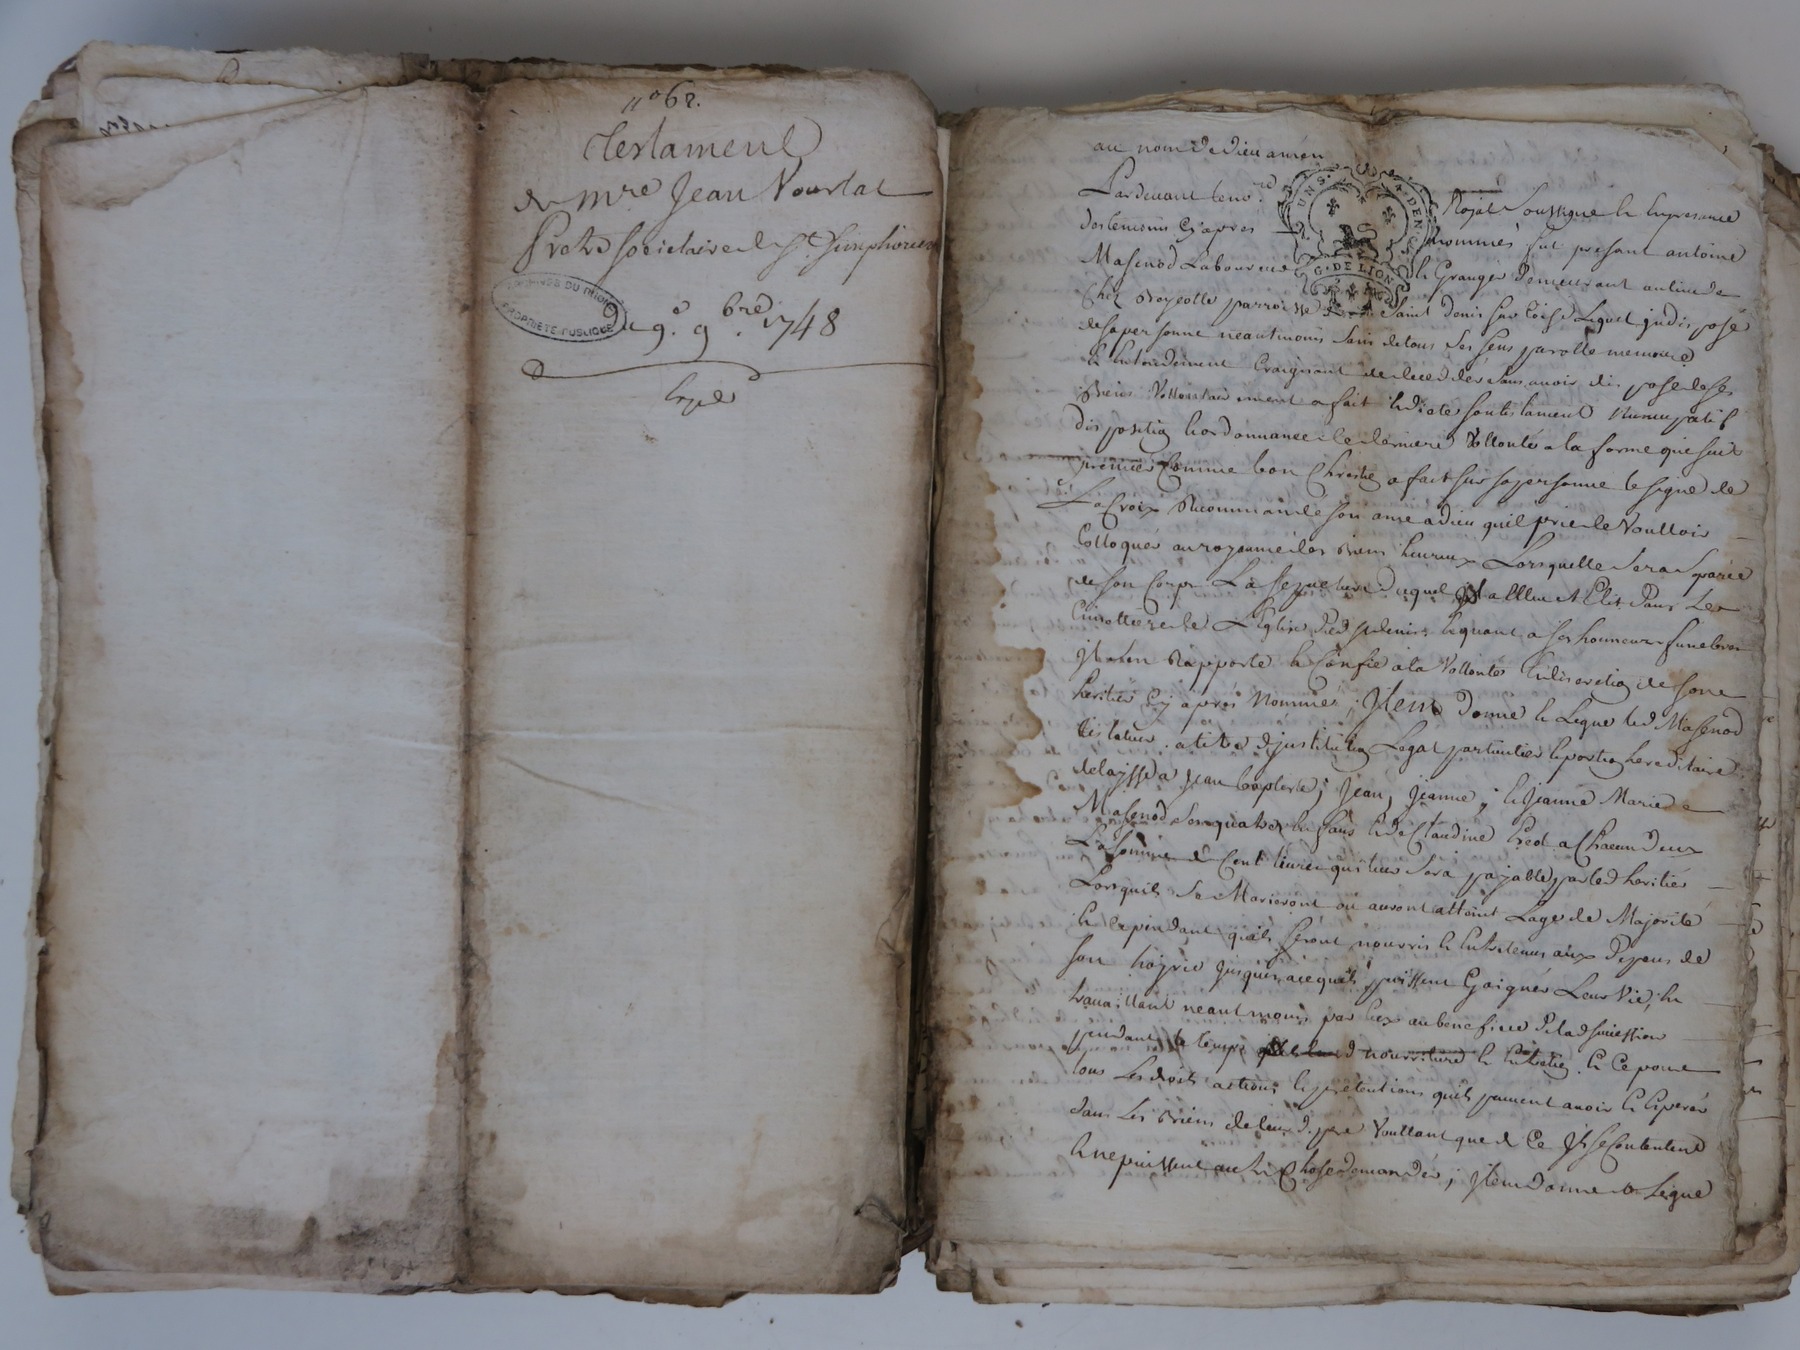 n° 62.
Testament
de mre Jean Vourlat
Pretre societaire de St. Simphorien
ARCHIVES DU RHONE
PROPRIETE PUBLIQUE
du 9e. 9bre. 1748
Expd
au nom de Dieu amen
Pardevant le no.re Royal soussigné & En presance
des temoins Cy apres nommés fut present antoine
Masenod Laboureur & Granger demeurant au lieu de
Chez parroisse de Saint denis sur Coise Lequel jndisposé
de sa personne neantmoins sain de tous ses sens parolle memoire
& Entendement Craignant de deceder sans avoir disposé de ses
Biens Vollontairement a fait & dicté son testament Nuncupatif
disposition & ordonnance de derniere Vollonté a la forme que suit
premier Comme bon Chrestien a fait sur sa personne le signe de
La Croix Recommandé son ame a dieu quil prie de Voulloir
Colloquer au royaume des Bien heureux Lorsquelle sera separée
de son Corps La sepulture duquel jl a Elleu Et Elit dans Le
Cimettiere de L'Eglise dud st denis & quant a ses honneurs funebres
jl sen Rapporte & Confie a la Vollonté & discretion de son
heritier Cy aprés Nommé ; jtem donne & Legue led Masenod
testateur a titre d'justitution Legat particulier & portion hereditaire
delaissé a Jean baptiste, Jean, Jeanne, & Jeanne Marie
Masenod ses quatre Enfans & de Claudine a Chacun deux
La somme de Cent livres qui leur sera payable par led heritier
Lorsquils se Marieront ou auront atteint Lage de Majorité
& Cependant quils seront nourris & Entretenus aux depens de
son hoyrie jusques a ce quils puissent Gaigner Leur Vie, En
travaillant neantmoins par Eux au benefice de lad succession
pendant le temps de nourriture & Entretien & Ce pour
tous Les droits actions & pretentions quils peuvent avoir & Esperer
dans Les Biens de leur d. pere Voullant que de Ce jls se Contentent
& ne puissent autre Chose demander ; jtem donne & Legue
G. DE LION